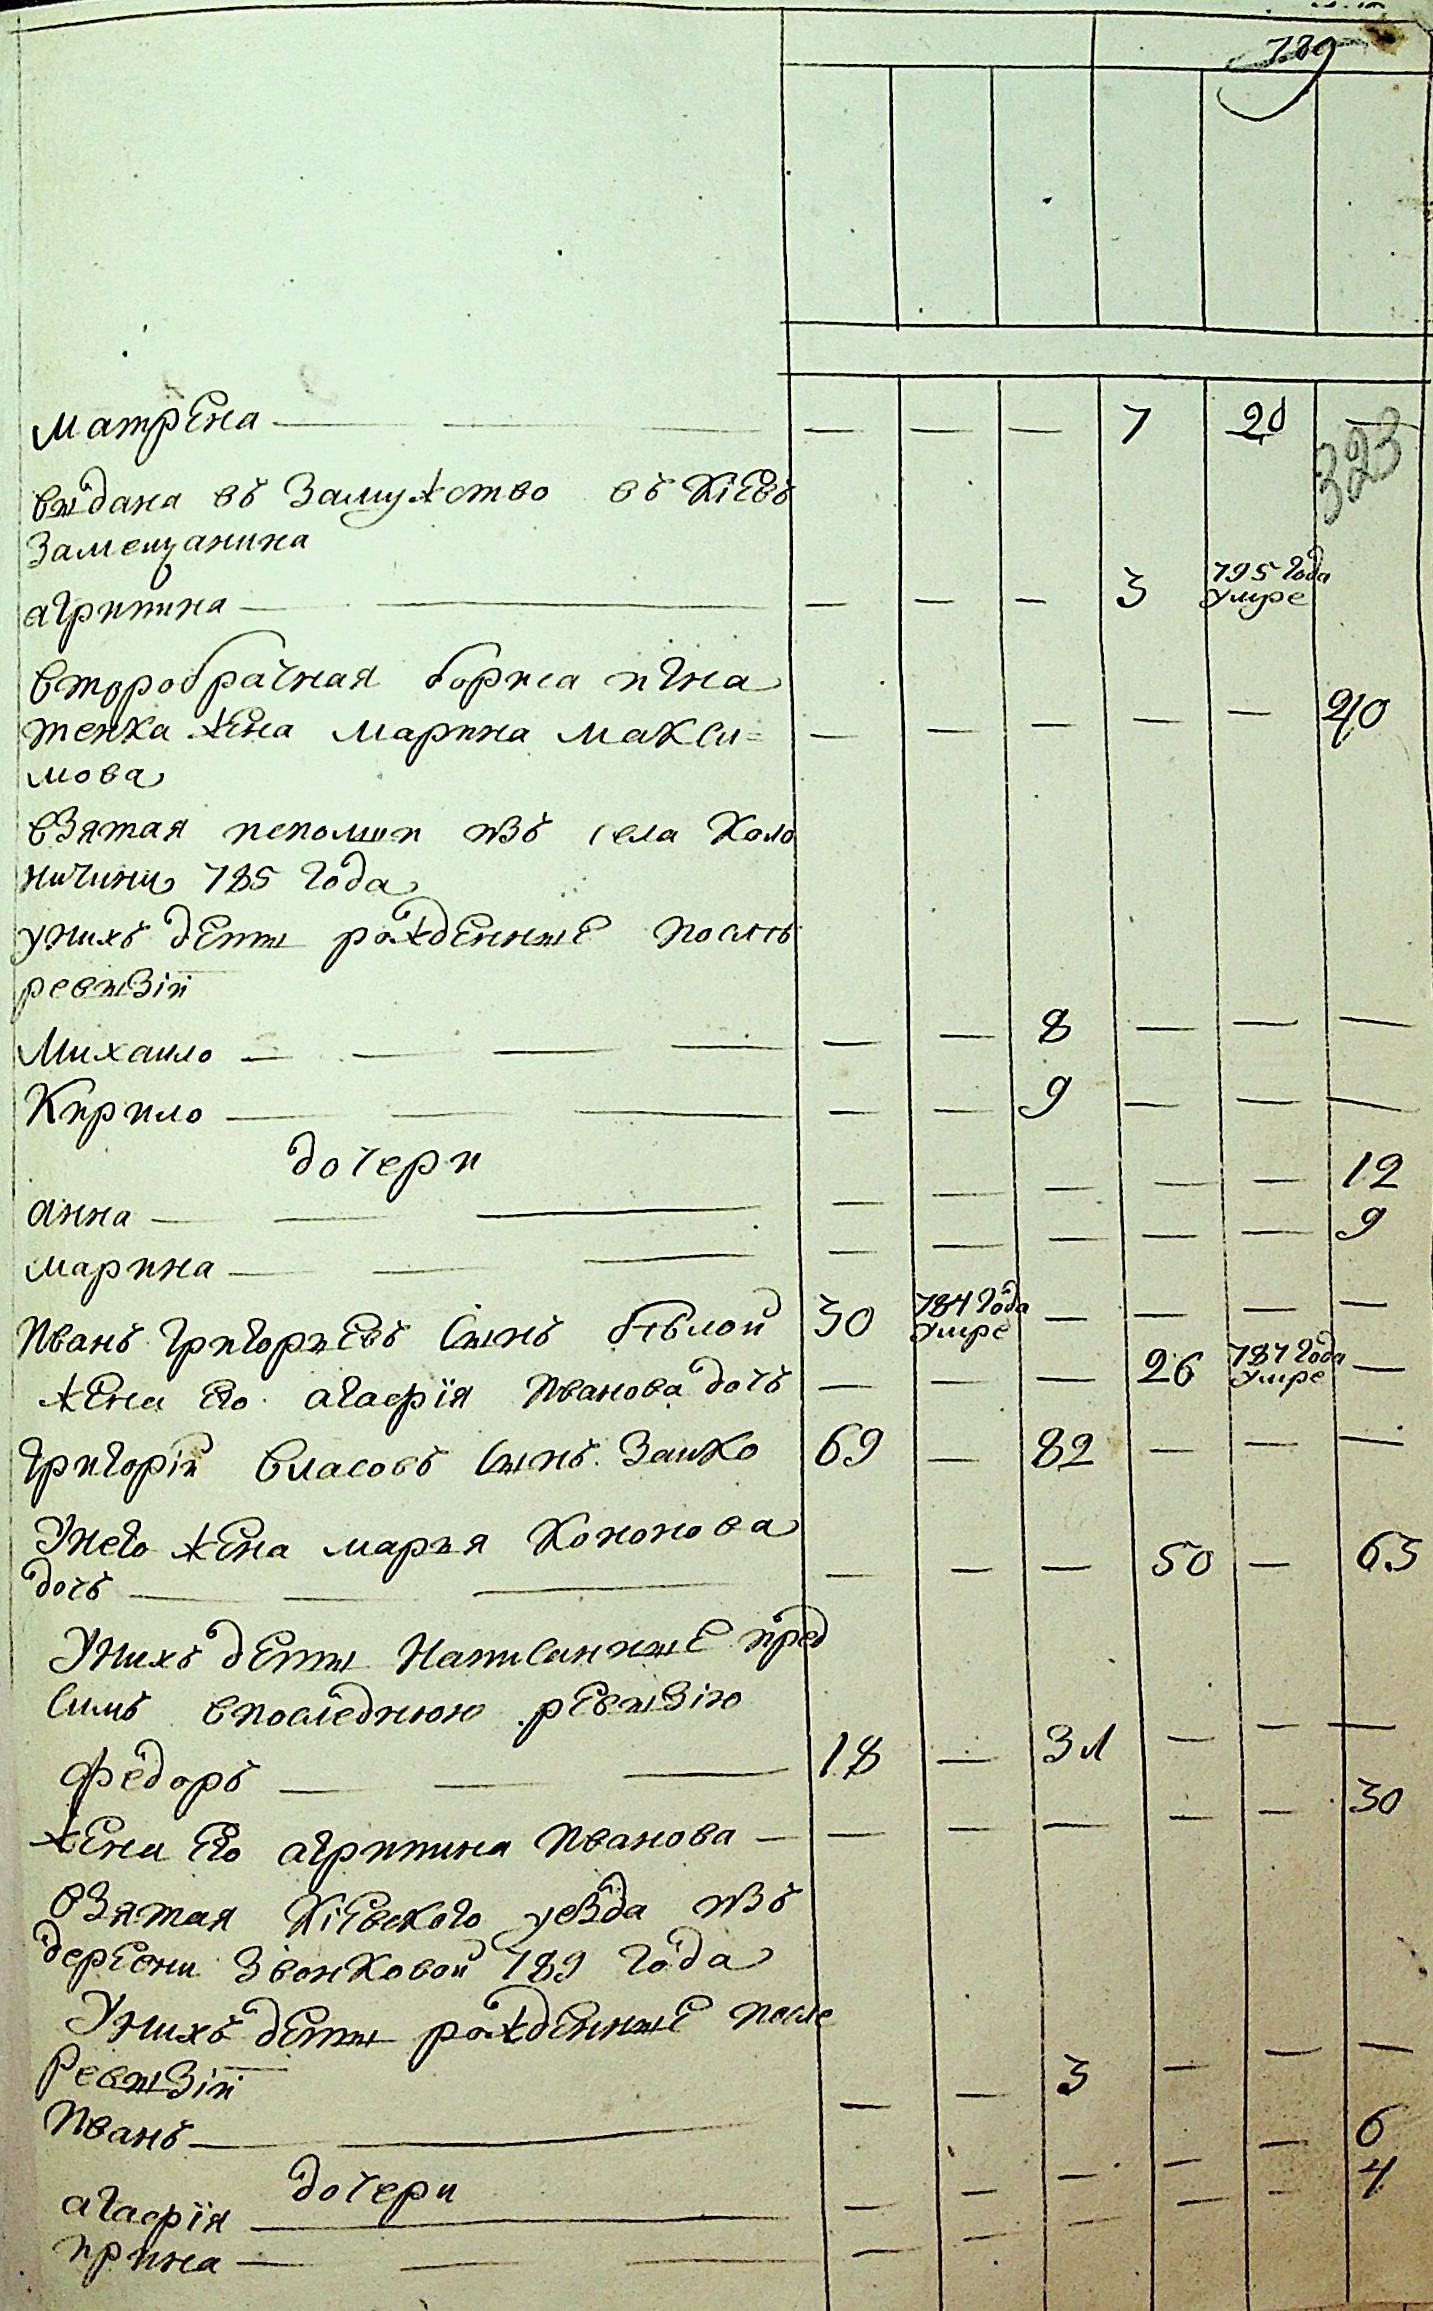 789
матрена — — — — — — 7 20 —
323
выдана въ замужство въ Кіевъ
замещанина
агрипина — — — — — 3 795 года умре
второбрачная бориса игна
тенка жена марина макси=
мова — — — — — 40
взятая
изъ села
ничини 785 года
унихъ дети рожденные послѣ
ревизіи
Михаило — — — — — — 8 — — —
Кирило — — — — — 9 — — —
дочери
анна — — — — — — — — 12
марина — — — — — — — — 9
Иванъ григориевъ сынъ бѣлой 30 784 года умре — — — —
жена его агафія иванова дочь — — — 26 787 года умре —
григорій власовъ сынъ заико 69 — 82 — — —
Унего жена марья кононова
дочь — — — — — — 50 — 65
Унихъ дети написанные пред
симъ впоследнюю ревизію
федоръ — — — 18 — 31 — — —
жена его агрипина иванова — — — — — — 30
взятая кіевского уезда изъ
деревни звонковой 789 года
Унихъ дети рожденные после
ревизіи
Иванъ — — — — 3 — — —
дочери
агафія — — — — — — 6
ирина — — — — — — — — 4